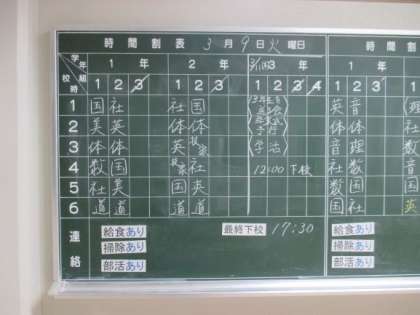 時間割表 3月9日火曜日
学年組 1年 2年 3年
校時 1 2 3 1 2 3 1 2 3 4
1 国 社 社 国
2 美 英 体 体
3 体 体 英 技家
4 数 国 技家 社 12:00 下校
5 社 美 国 英
6 道 道 道 道
連絡 給食あり 最終下校 17:30
掃除あり
部活あり
時間割
1年
1 2 3
英 音 理
体 体
音 理 数
社 数 音
数 国
国 社 英
給食あり
掃除あり
部活あり